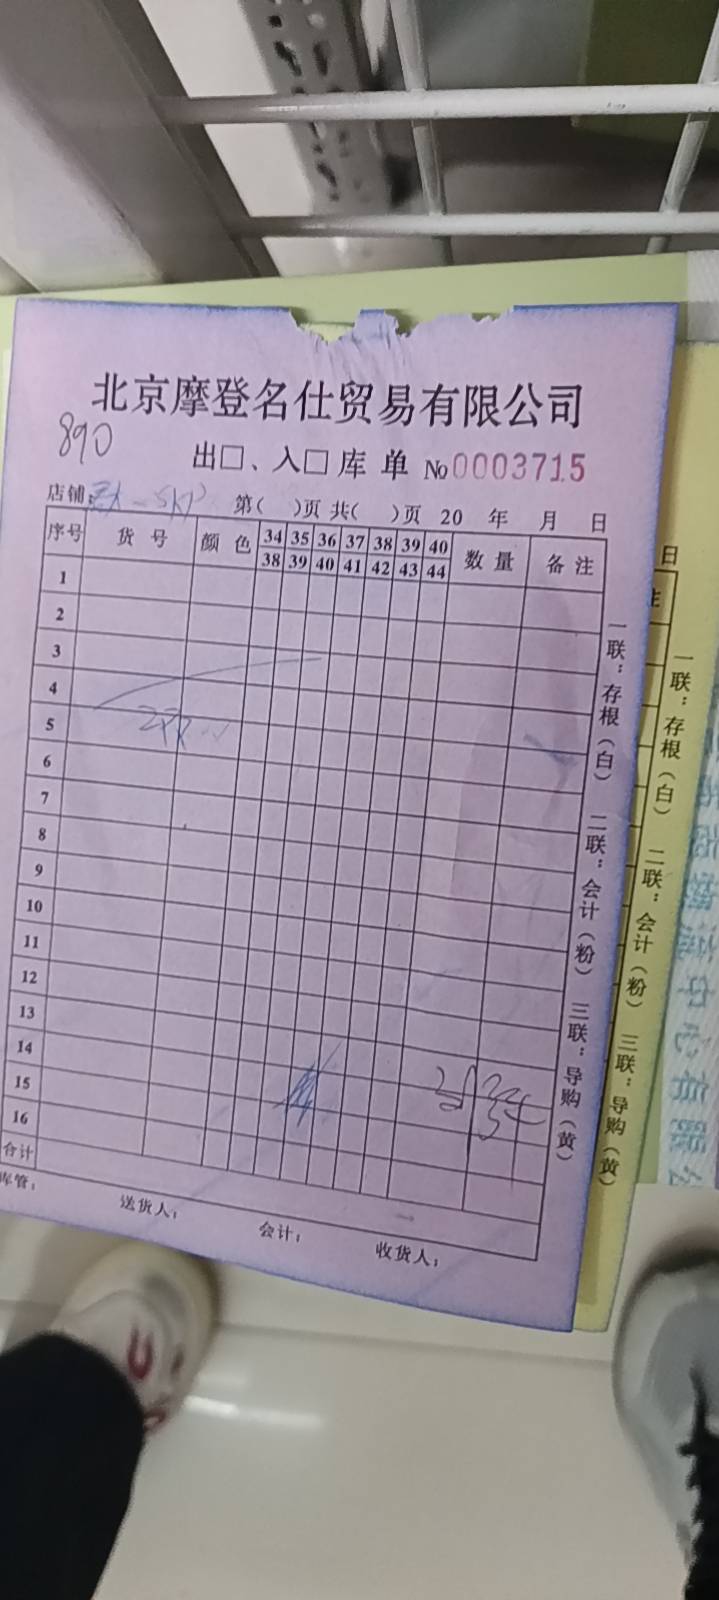 北京摩登名仕贸易有限公司
890
出□、入□库单 No 0003715
店铺: SKP 第( )页 共( )页 20 年 月 日
序号 货号 颜色 34 35 36 37 38 39 40 数量 备注
38 39 40 41 42 43 44
1
2
3
4
5
6
7
8
9
10
11
12
13
14
15
16
合计
库管: 送货人: 会计: 收货人:
一联:存根(白) 二联:会计(粉) 三联:导购(黄)
日
注
一联:存根(白) 二联:会计(粉) 三联:导购(黄)